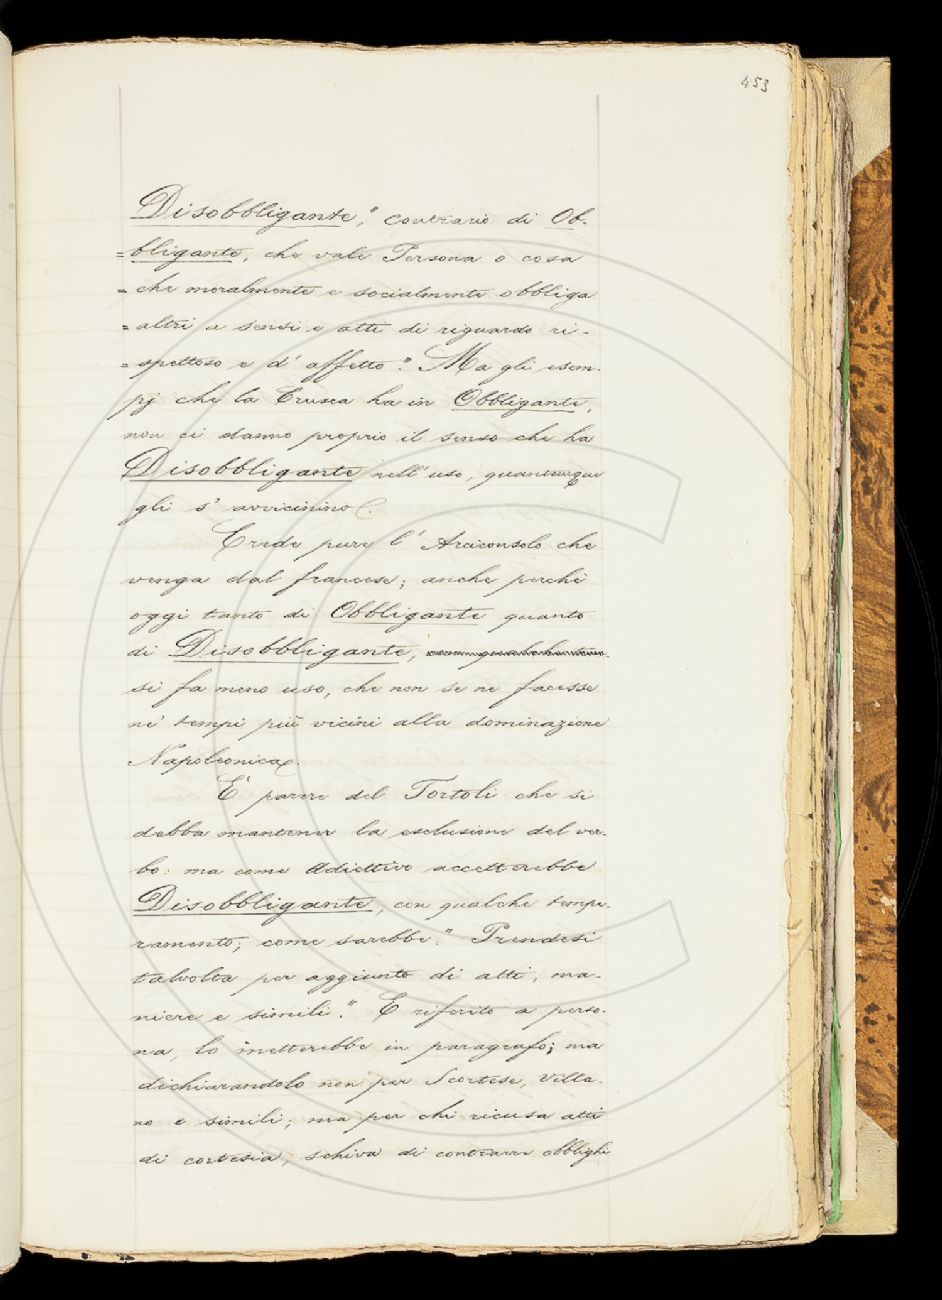 453
Disobbligante", contrario di Ob-
=bligante, che vale Persona o cosa
=che moralmente e socialmente obbliga
=altri a sensi e atti di riguardo ri-
=spettoso e d'affetto". Ma gli esem-
pj che la Crusca ha in Obbligante,
non ci danno proprio il senso che ha
Disobbligante nell'uso, quantunque
gli s'avvicinino.
Crede pure l'Arciconsolo che
venga dal francese; anche perchè
oggi tanto di Obbligante quanto
di Disobbligante,
si fa meno uso, che non se ne facesse
ne' tempi più vicini alla dominazione
Napoleonica.
E' parere del Tortoli che si
debba mantener la esclusione del ver-
bo: ma come Adiettivo accetterebbe
Disobbligante, con qualche tempe-
ramento; come sarebbe: "Prendesi
talvolta per aggiunto di atti, ma-
niere e simili". E riferito a perso-
na, lo metterebbe in paragrafo; ma
dichiarandolo non per Scortese, Villa-
no e simili; ma per chi ricusa atti
di cortesia, schiva di contrarre obblighi